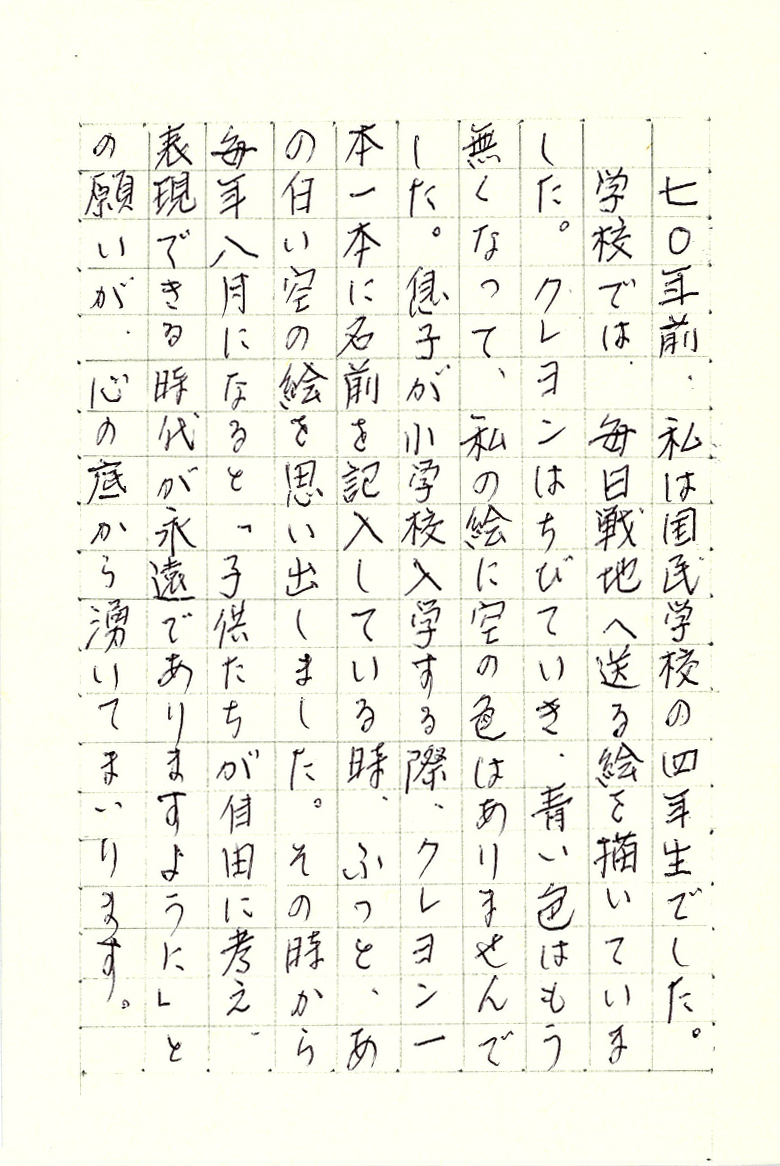 七〇年前、私は国民学校の四年生でした。
学校では、毎日戦地へ送る絵を描いていま
した。クレヨンはちびていき、青い色はもう
無くなって、私の絵に空の色はありませんで
した。息子が小学校入学する際、クレヨン一
本一本に名前を記入している時、ふっと、あ
の白い空の絵を思い出しました。その時から
毎年八月になると「子供たちが自由に考え、
表現できる時代が永遠でありますように」と
の願いが、心の底から湧いてまいります。